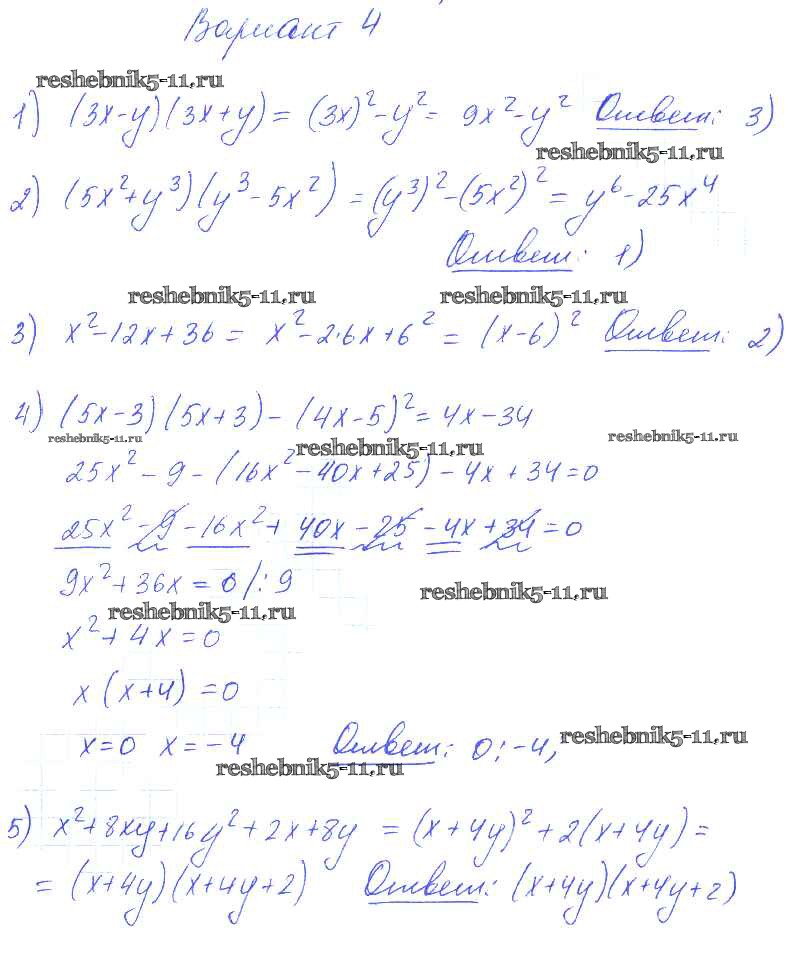 Вариант 4
reshebnik5-11.ru
1) (3x-y)(3x+y) = (3x)²-y² = 9x²-y² Ответ: 3)
reshebnik5-11.ru
2) (5x²+y³)(y³-5x²) = (y³)²-(5x²)² = y⁶-25x⁴
Ответ: 1)
reshebnik5-11.ru reshebnik5-11.ru
3) x²-12x+36 = x²-2·6x+6² = (x-6)² Ответ: 2)
4) (5x-3)(5x+3)-(4x-5)² = 4x-34
reshebnik5-11.ru reshebnik5-11.ru reshebnik5-11.ru
25x²-9-(16x²-40x+25)-4x+34=0
25x²-9-16x²+40x-25-4x+34=0
9x²+36x=0 /:9
reshebnik5-11.ru
reshebnik5-11.ru
x²+4x=0
x(x+4)=0
x=0 x=-4 Ответ: 0; -4,
reshebnik5-11.ru
reshebnik5-11.ru
5) x²+8xy+16y²+2x+8y = (x+4y)²+2(x+4y) =
= (x+4y)(x+4y+2) Ответ: (x+4y)(x+4y+2)